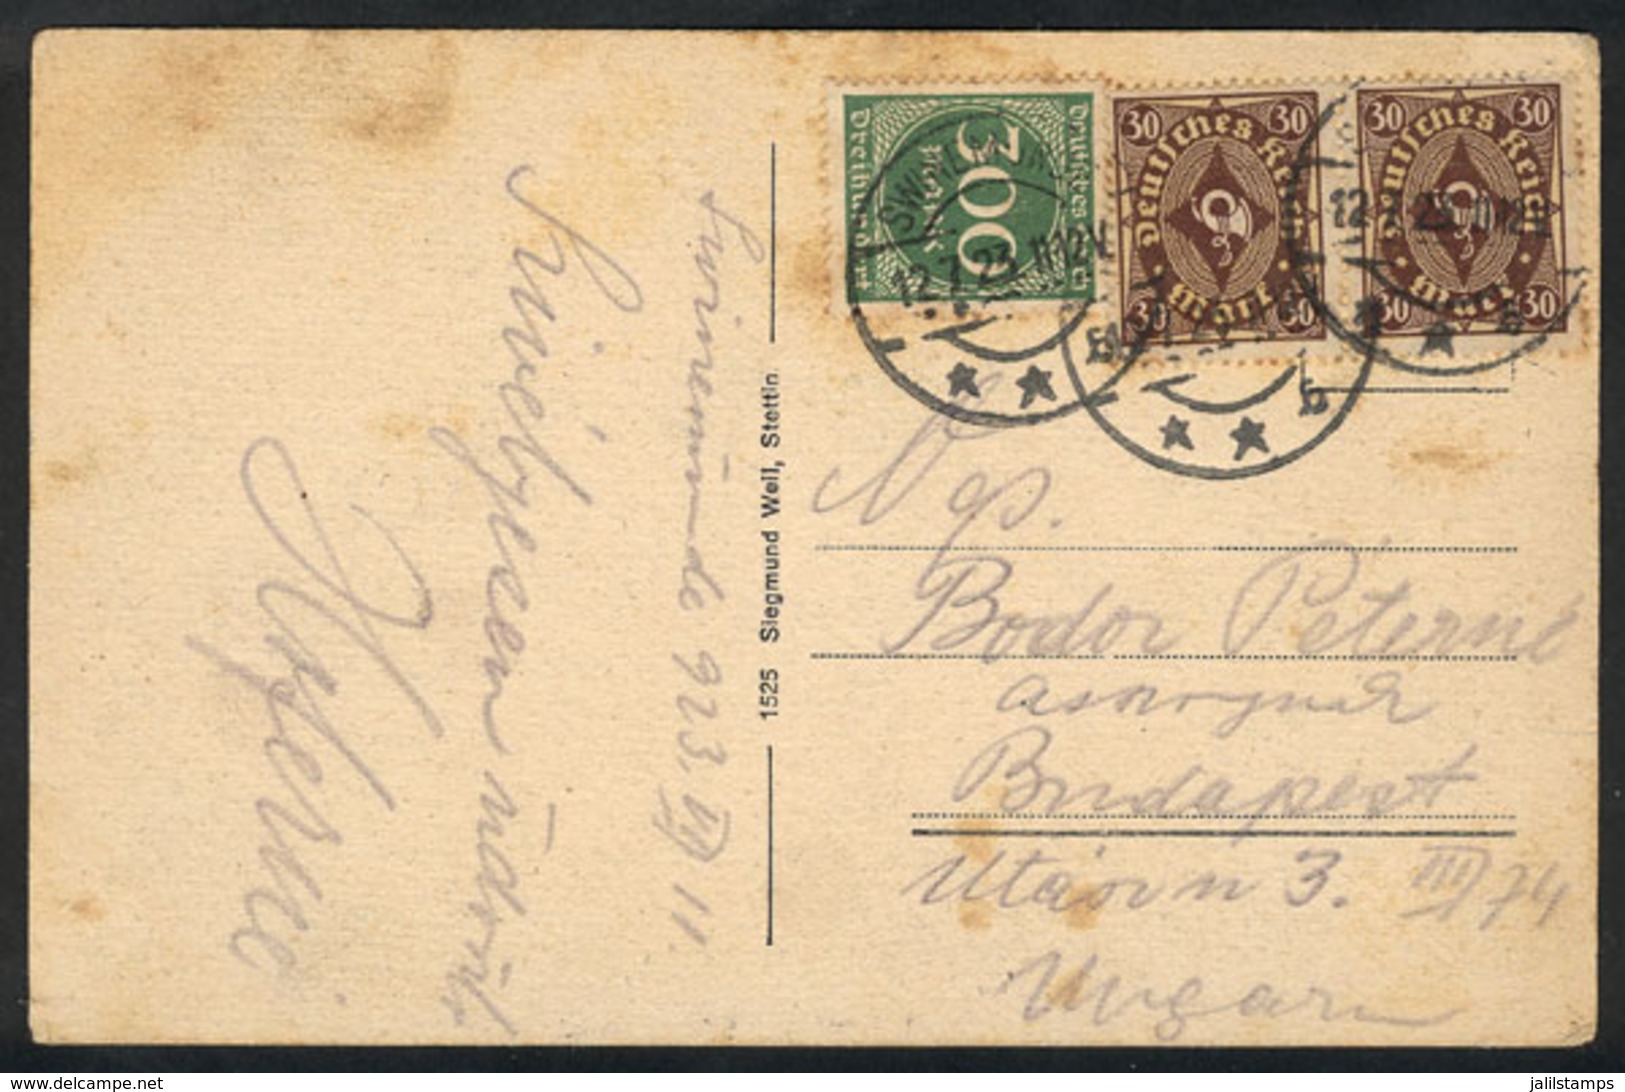 Swinemünde 923. VII 11.
Szívélyesen üdvözli
1525 Siegmund Weil, Stettin.
Deutsches Reich
300
Mark
Dreihundert
30 30
Deutsches Reich
Mark
30 30
30 30
Deutsches Reich
Mark
30 30
12.7.23.11-12V
12.7.23.11-12V
★ ★
★ ★ b
★ b
Ngs.
Bodor Péterné
Budapest
3. III/74
Ungarn
jalilstamps